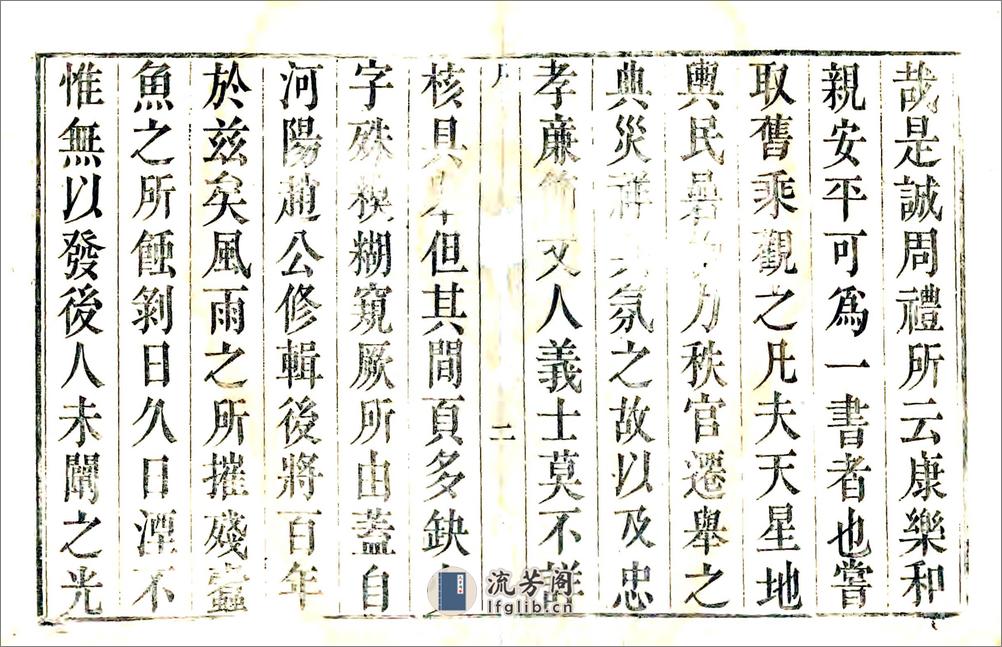 哉是誠周禮所云康樂和
親安平可爲一書者也嘗
取舊乘觀之凡夫天星地
輿民力秩官遷舉之
典災祥氛之故以及忠
孝廉節文人義士莫不詳
序 二
核具但其間頁多缺
字殊模糊窺厥所由蓋自
河陽趙公修輯後將百年
於茲矣風雨之所摧殘蠹
魚之所蝕剝日久日湮不
惟無以發後人未闡之光
流芳阁
lfglib.cn